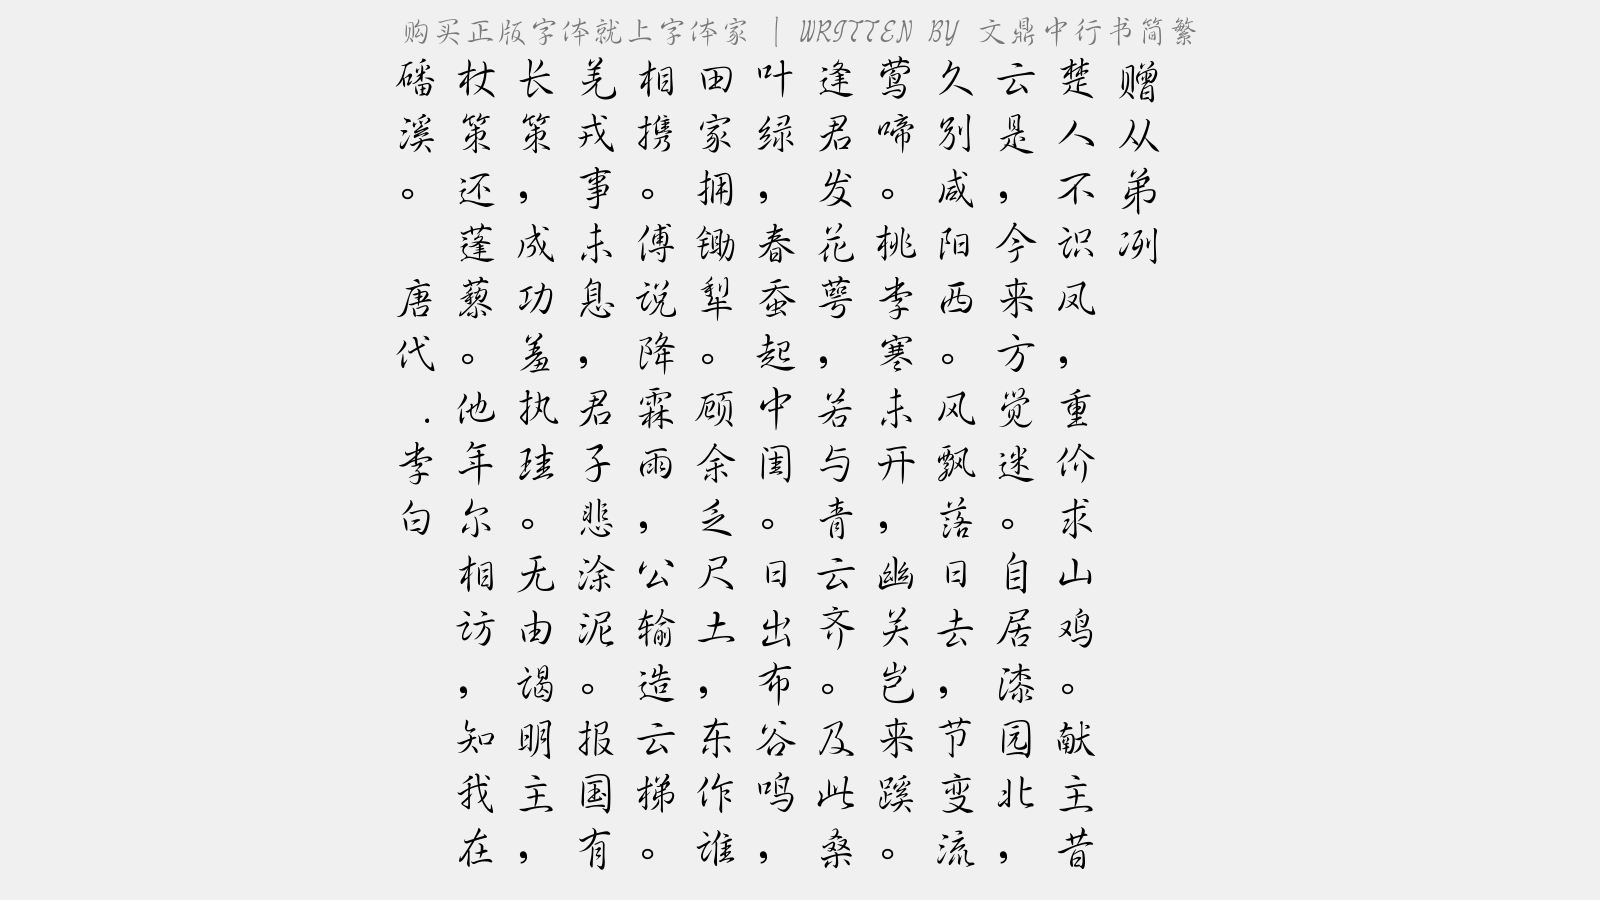 购买正版字体就上字体家 | WRITTEN BY 文鼎中行书简繁
赠从弟冽
楚人不识凤，重价求山鸡。献主昔
云是，今来方觉迷。自居漆园北，
久别咸阳西。风飘落日去，节变流
莺啼。桃李寒未开，幽关岂来蹊。
逢君发花萼，若与青云齐。及此桑
叶绿，春蚕起中闺。日出布谷鸣，
田家拥锄犁。顾余乏尺土，东作谁
相携。傅说降霖雨，公输造云梯。
羌戎事未息，君子悲涂泥。报国有
长策，成功羞执珪。无由谒明主，
杖策还蓬藜。他年尔相访，知我在
磻溪。 唐代.李白